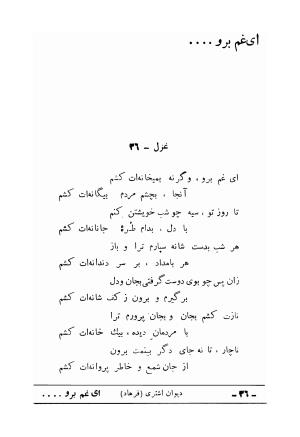 ای‌غم برو ....
غزل - ۳۶
ای غم برو ، وگرنه بمیخانه‌ات کشم
آنجا ، بچشم مردم بیگانه‌ات کشم
تا روز تو ، سیه چو شب خویشتن کنم
با دل ، بدام طرهٔ جانانه‌ات کشم
هر شب بدست شانه سپارم ترا و باز
هر بامداد ، بر سر دندانه‌ات کشم
زان پس چو بوی دوست گرفتی بجان و دل
برگیرم و برون ز کف شانه‌ات کشم
نازت کشم بجان و بجان پرورم ترا
با مردمان دیده ، بیك خانه‌ات کشم
ناچار ، تا نه جای دگر بینمت برون
از جان شمع و خاطر پروانه‌ات کشم
ای غم برو ....
دیوان اشتری (فرهاد)
- ۳۶ -